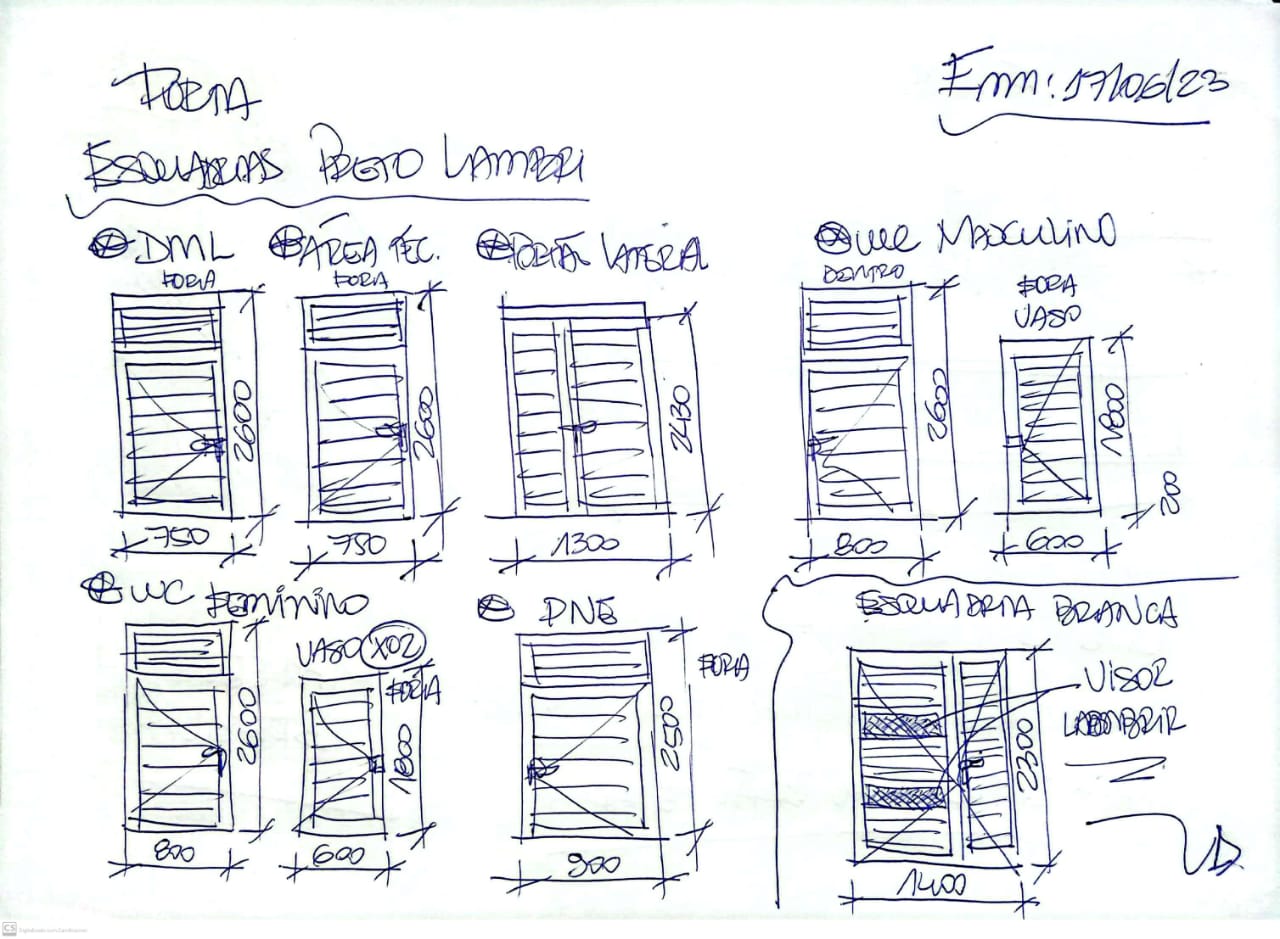 PORTA
Em: 17/06/23
ESQUADRIAS PRETO LAMBRI
DML
FORA
2600
750
ÁREA TÉC.
FORA
2600
750
LATERAL
2430
1300
WC MASCULINO
DENTRO
2600
800
FORA
VASO
1800
200
600
WC FEMININO
2600
800
VASO X02
FORA
1800
600
PNE
FORA
2500
900
ESQUADRIA BRANCA
VISOR
2300
1400
CS Digitalizado com CamScanner